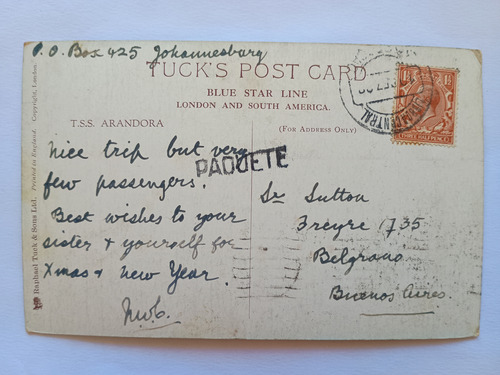 P.O. Box 425 Johannesburg
TUCK'S POST CARD
BLUE STAR LINE
LONDON AND SOUTH AMERICA.
T.S.S. ARANDORA
(FOR ADDRESS ONLY)
Nice trip but very
few passengers.
Best wishes to your
sister & yourself for
Xmas & New Year.
PAQUETE
Sr Sutton
Freyre 1735
Belgrano
Buenos Aires.
CENTRAL
THREE HALFPENCE
Raphael Tuck & Sons Ltd. Printed in England. Copyright, London.